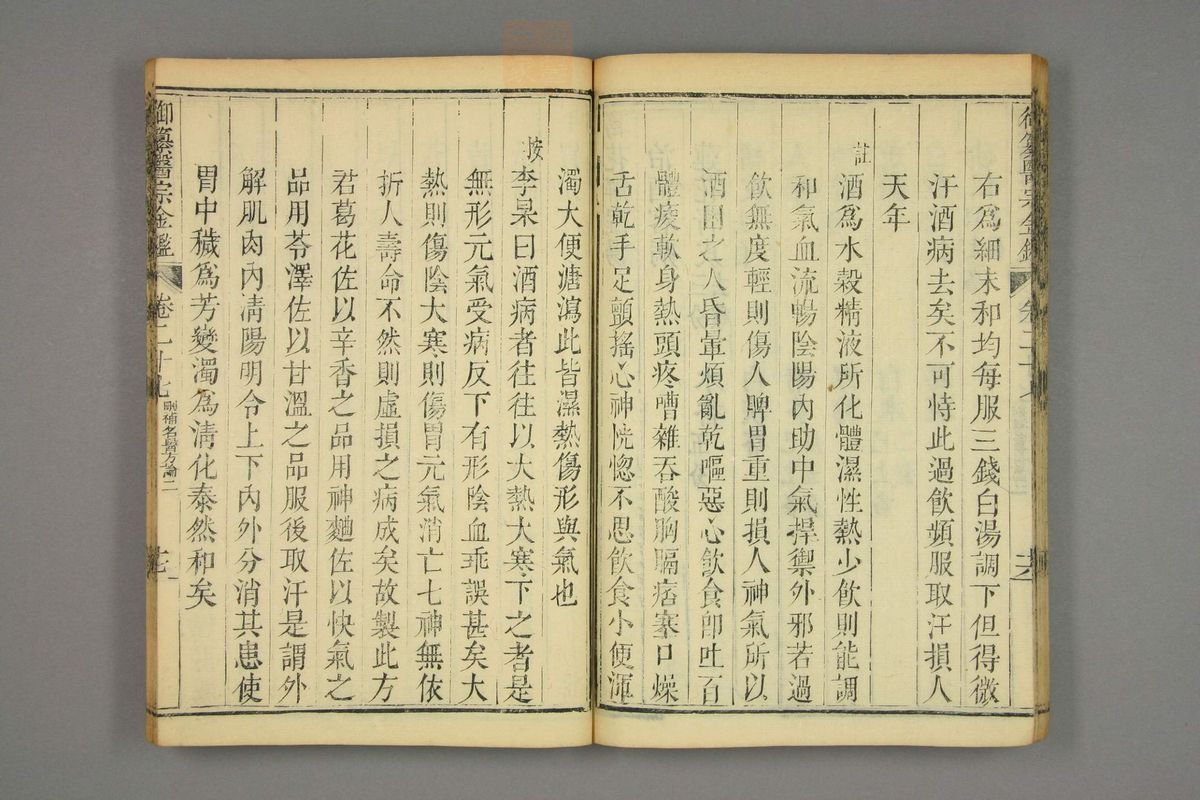 右為細末和均每服三錢白湯調下但得微
汗酒病去矣不可恃此過飲頻服取汗損人
天年
註
酒為水穀精液所化體濕性熱少飲則能調
和氣血流暢陰陽內助中氣捍禦外邪若過
飲無度輕則傷人脾胃重則損人神氣所以
酒困之人昏暈煩亂乾嘔惡心飲食即吐百
體疲軟身熱頭疼嘈雜吞酸胸膈痞塞口燥
舌乾手足顫搖心神恍惚不思飲食小便渾
濁大便溏瀉此皆濕熱傷形與氣也
按
李杲曰酒病者往往以大熱大寒下之者是
無形元氣受病反下有形陰血乖誤甚矣大
熱則傷陰大寒則傷胃元氣消亡七神無依
折人壽命不然則虛損之病成矣故製此方
君葛花佐以辛香之品用神麯佐以快氣之
品用苓澤佐以甘溫之品服後取汗是謂外
解肌肉內清陽明令上下內外分消其患使
胃中穢為芳變濁為清化泰然和矣
御纂醫宗金鑑
卷二十七
刪補名醫方論二